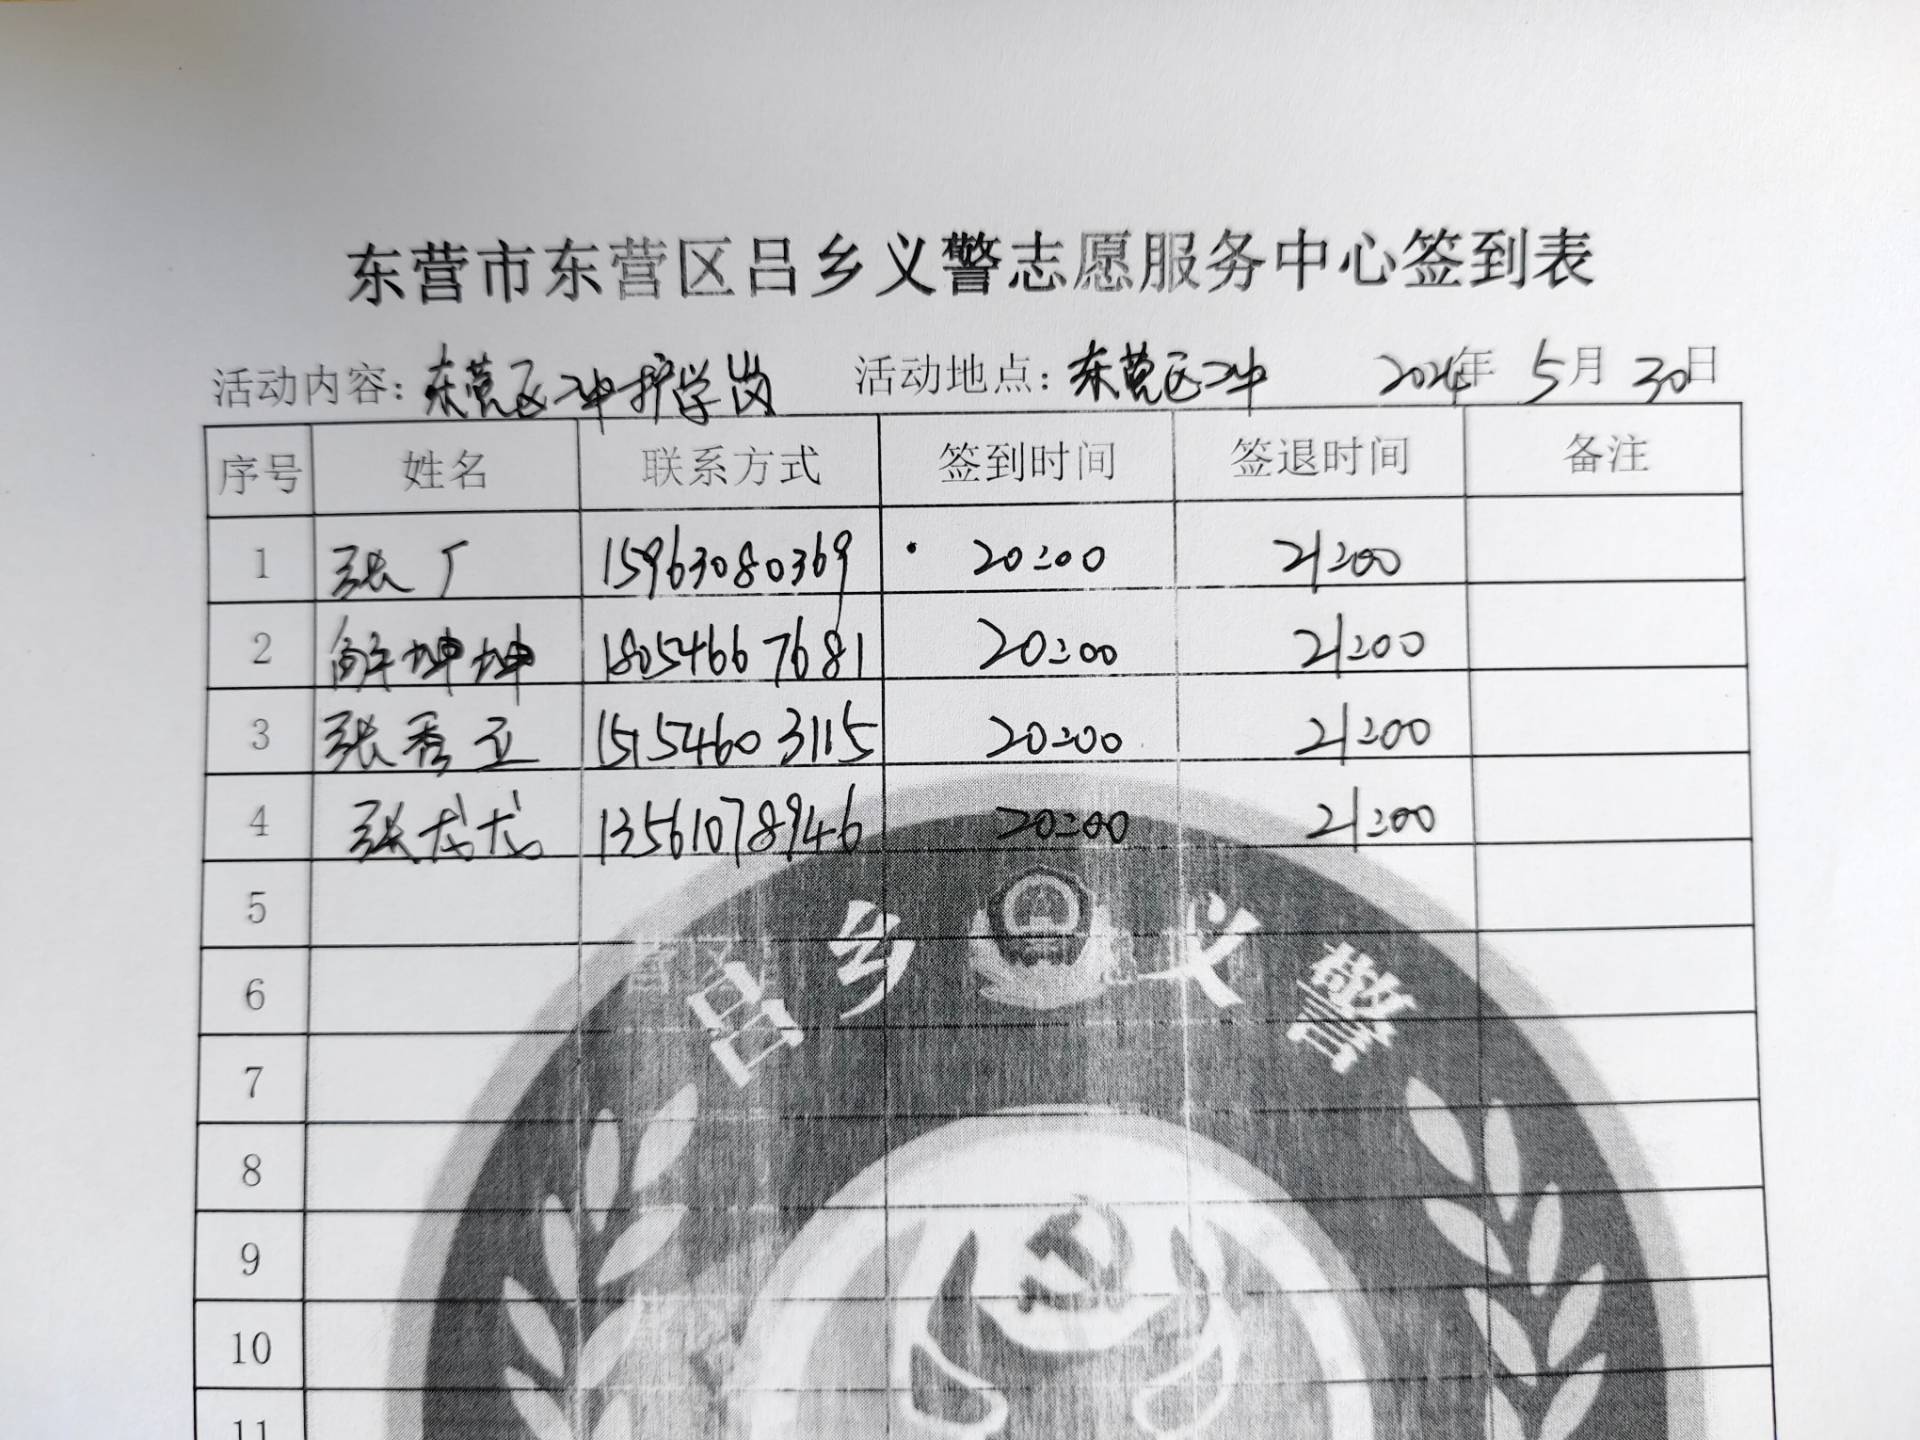 东营市东营区吕乡义警志愿服务中心签到表
活动内容：东营区二中护学岗 活动地点：东营区二中 2024年 5月 30日
序号 姓名 联系方式 签到时间 签退时间 备注
1 张广 15963080369 20:00 21:00
2 解坤坤 18054667681 20:00 21:00
3 张秀正 15154603115 20:00 21:00
4 张龙龙 13561078946 20:00 21:00
5
6
7
8
9
10
11
吕乡义警